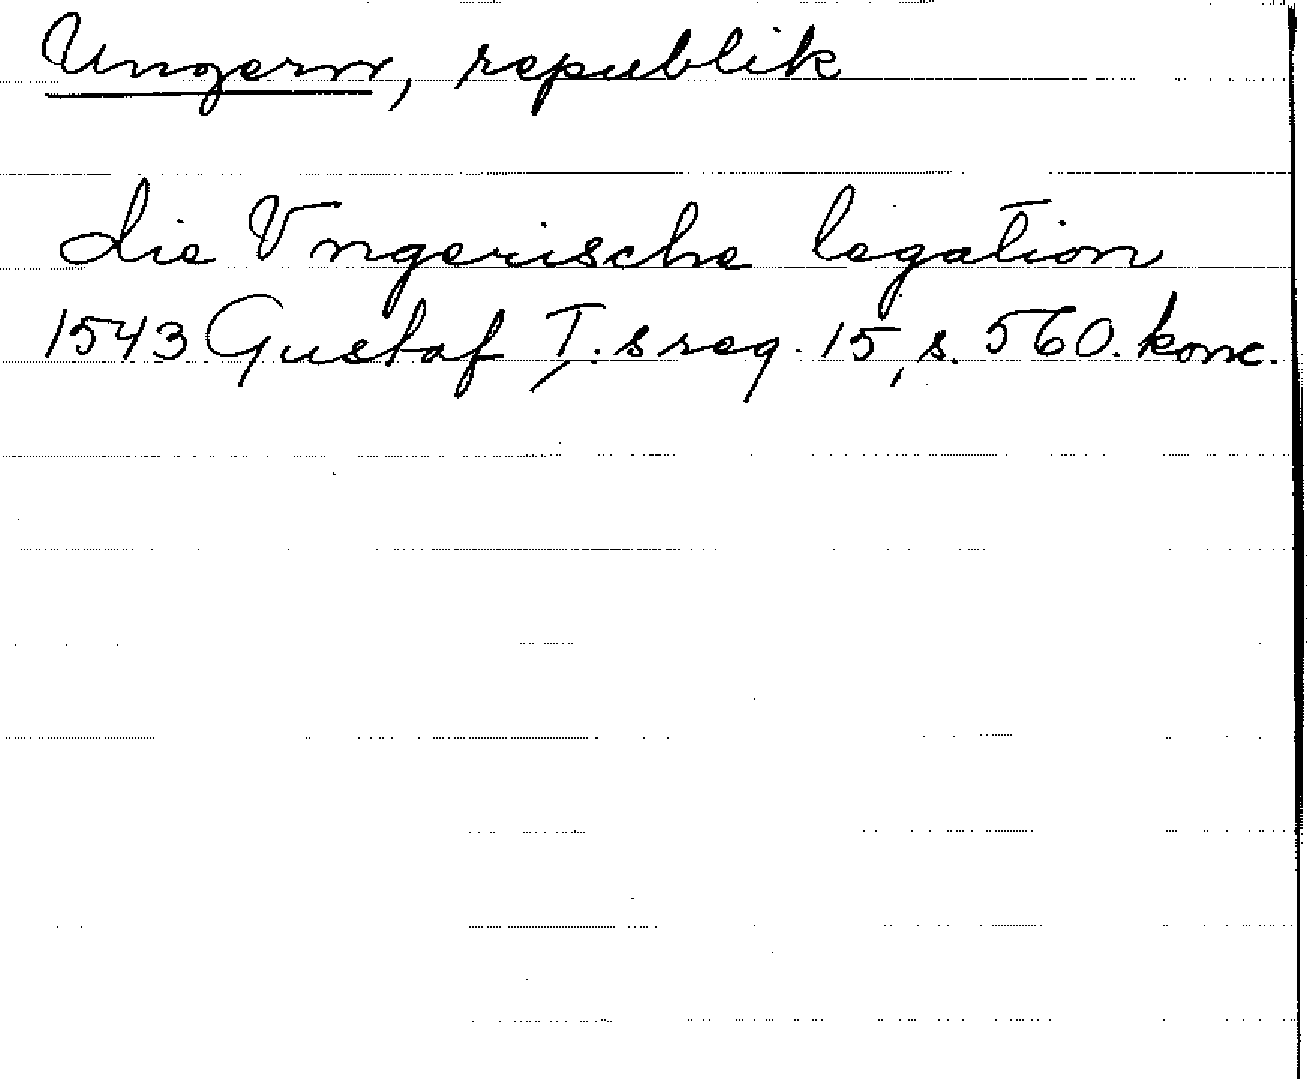 Ungern, republik
die Vngerische legation
1543 Gustaf I:s reg. 15, s. 560. konc.